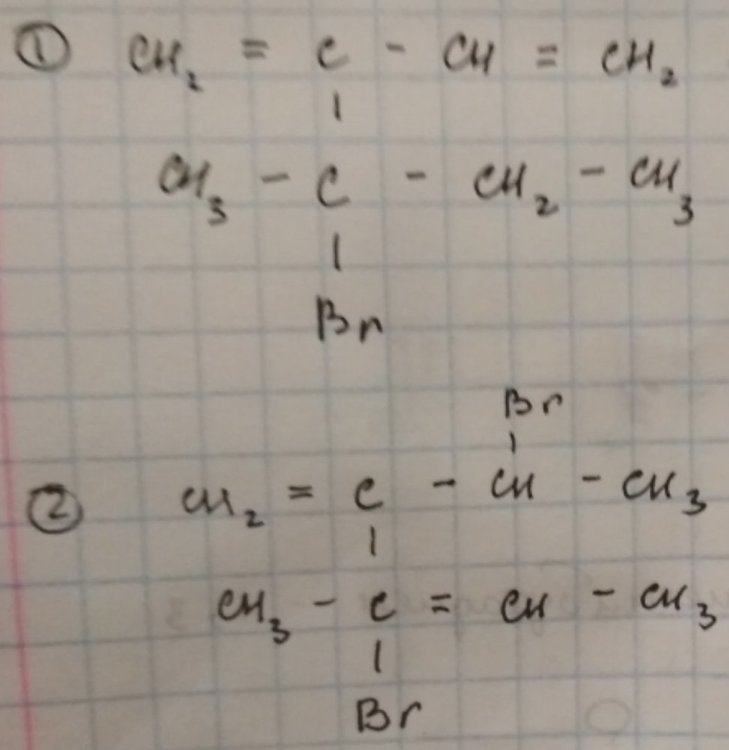 ① CH₂ = C - CH = CH₂
|
CH₃ - C - CH₂ - CH₃
|
Br
Br
|
② CH₂ = C - CH - CH₃
|
CH₃ - C = CH - CH₃
|
Br